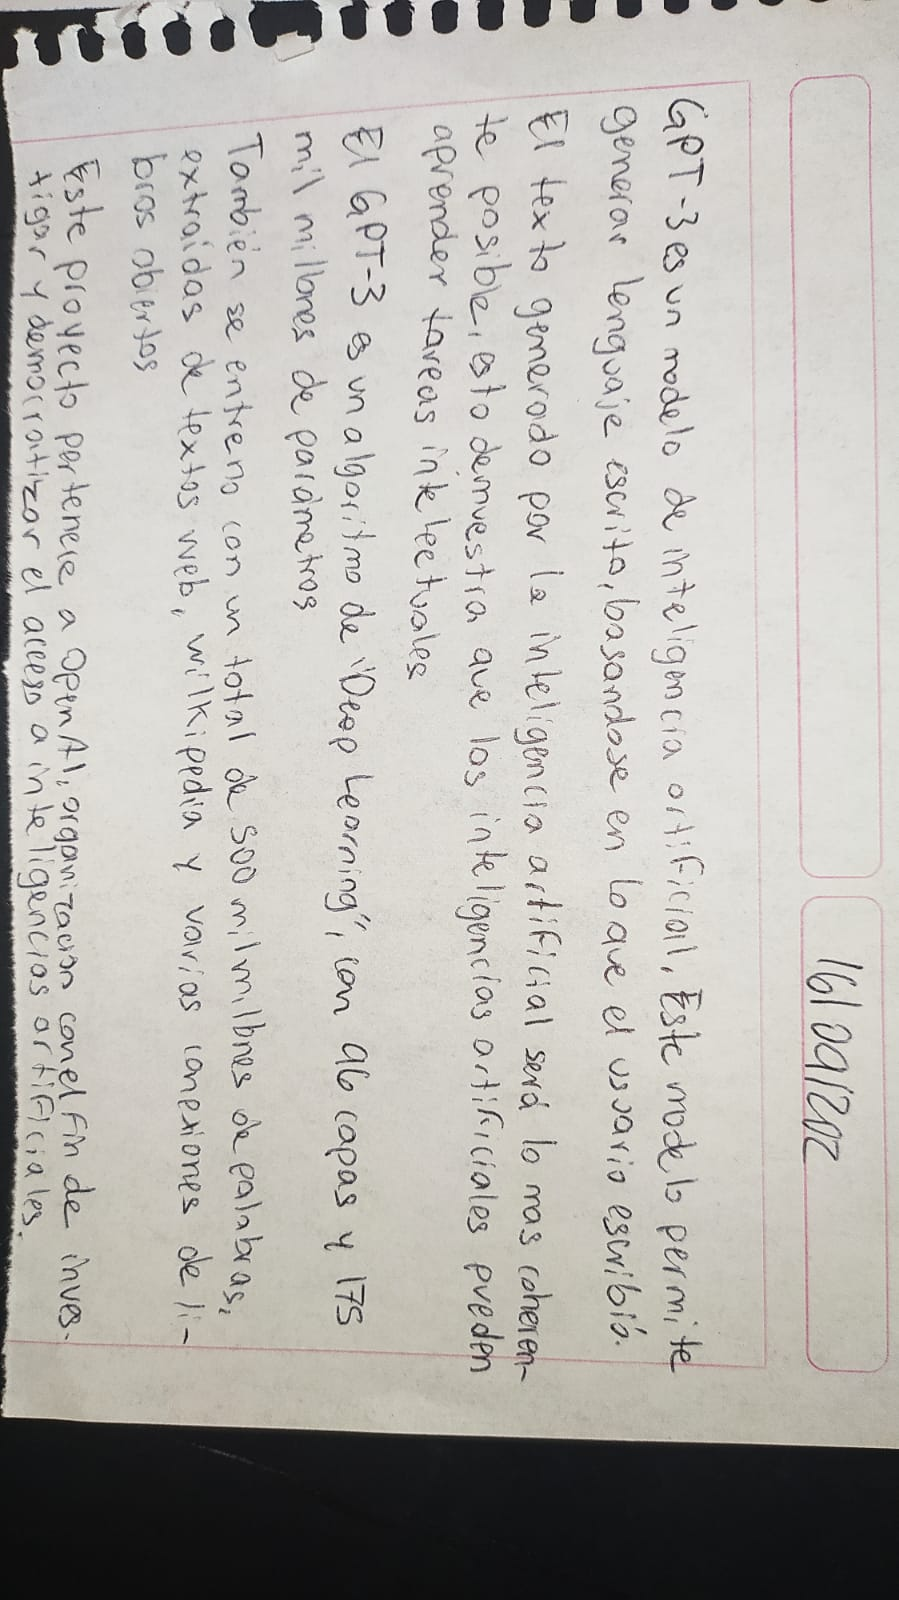 16/09/202
GPT-3 es un modelo de inteligencia artificial, Este modelo permite
generar lenguaje escrito, basandose en lo que el usuario escribió.
El texto generado por la inteligencia artificial será lo mas coheren-
te posible, esto demuestra que las inteligencias artificiales pueden
aprender tareas intelectuales
El GPT-3 es un algoritmo de "Deep Learning", con 96 capas y 175
mil millones de parámetros
También se entreno con un total de 500 mil millones de palabras,
extraídas de textos web, wilkipedia y varias conexiones de li-
bros abiertos
Este proyecto pertenece a OpenAI, organización con el fin de inves-
tigar y democratizar el acceso a inteligencias artificiales.